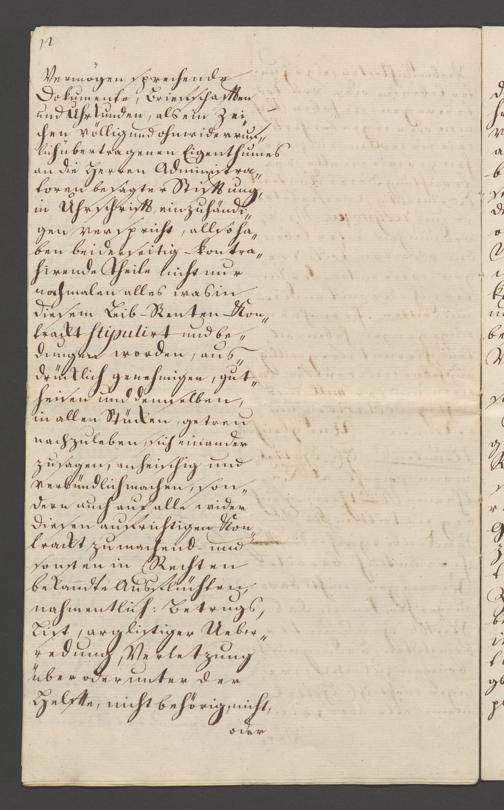 12
Vermögen sprechende
Dokumente, Briefschafften
und Uhrkunden, als ein Zei„
chen völlig und ohnwiderruf„
lich übertragenen Eigenthumes
an die Herren Administra„
toren besagter Stifftung,
in Uhrschrifft, einzuhändi„
gen verspricht, allso ha„
ben beiderseitig-kontra„
hirende Theile nicht nur
nochmalen alles was in
diesem Leib-Renten-Kon„
trackt stipulirt und be„
dungen worden, aus„
drücklich genehmigen, gut„
heisen und demselben,
in allen Stücken, getreu
nachzuleben, sich einander
zusagen, anheischig und
verbündlich machen, son„
dern auch auf alle wider
diesen aufrichtigen Kon„
trackt zu machend- und
sonsten in Rechten
bekandte Ausflüchten,
nahmentlich: Betrugs,
List, arglistiger Ueber„
redung, Verletzung
über oder unter der
Helffte, nicht behörig, nicht,
oder